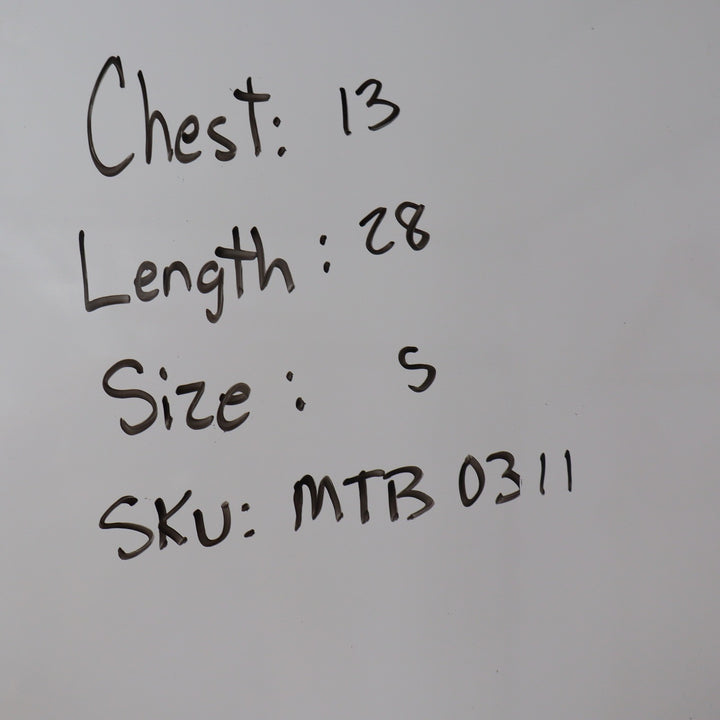 Chest: 13
Length: 28
Size: S
SKU: MTB 0311